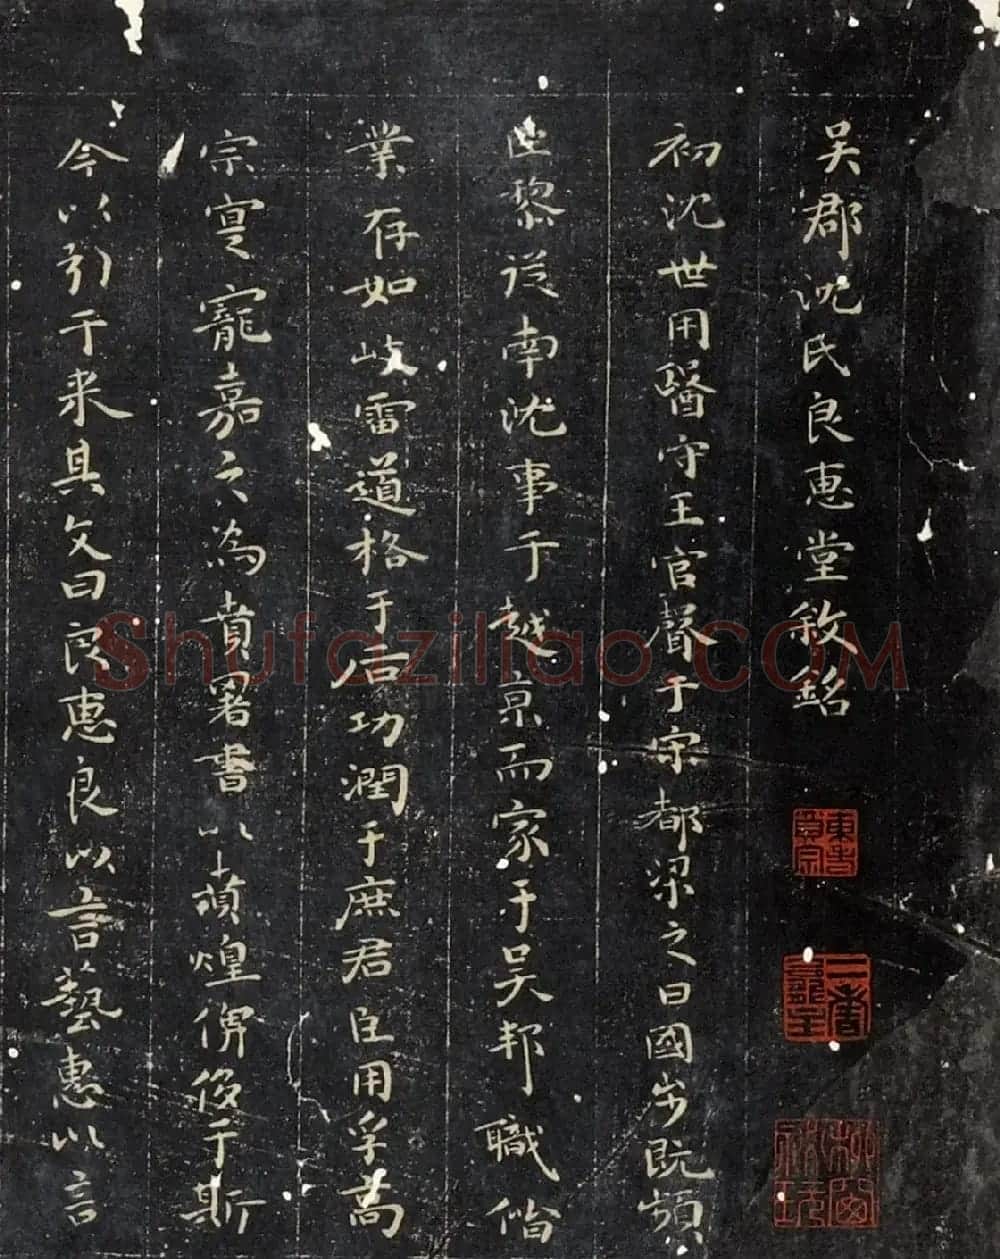 吴郡沈氏良惠堂敘銘
初沈世用醫守王官聲于宋都梁之日國步既頻
黎從南沈事于越京而家于吴邦職偕
業存如岐雷道格于后功潤于庶君臣用孚高
宗寔寵嘉之為賁署書以蕆煌俾後于斯
今以引于来具文曰良惠良以言藝惠以言
Shufaziliao.COM